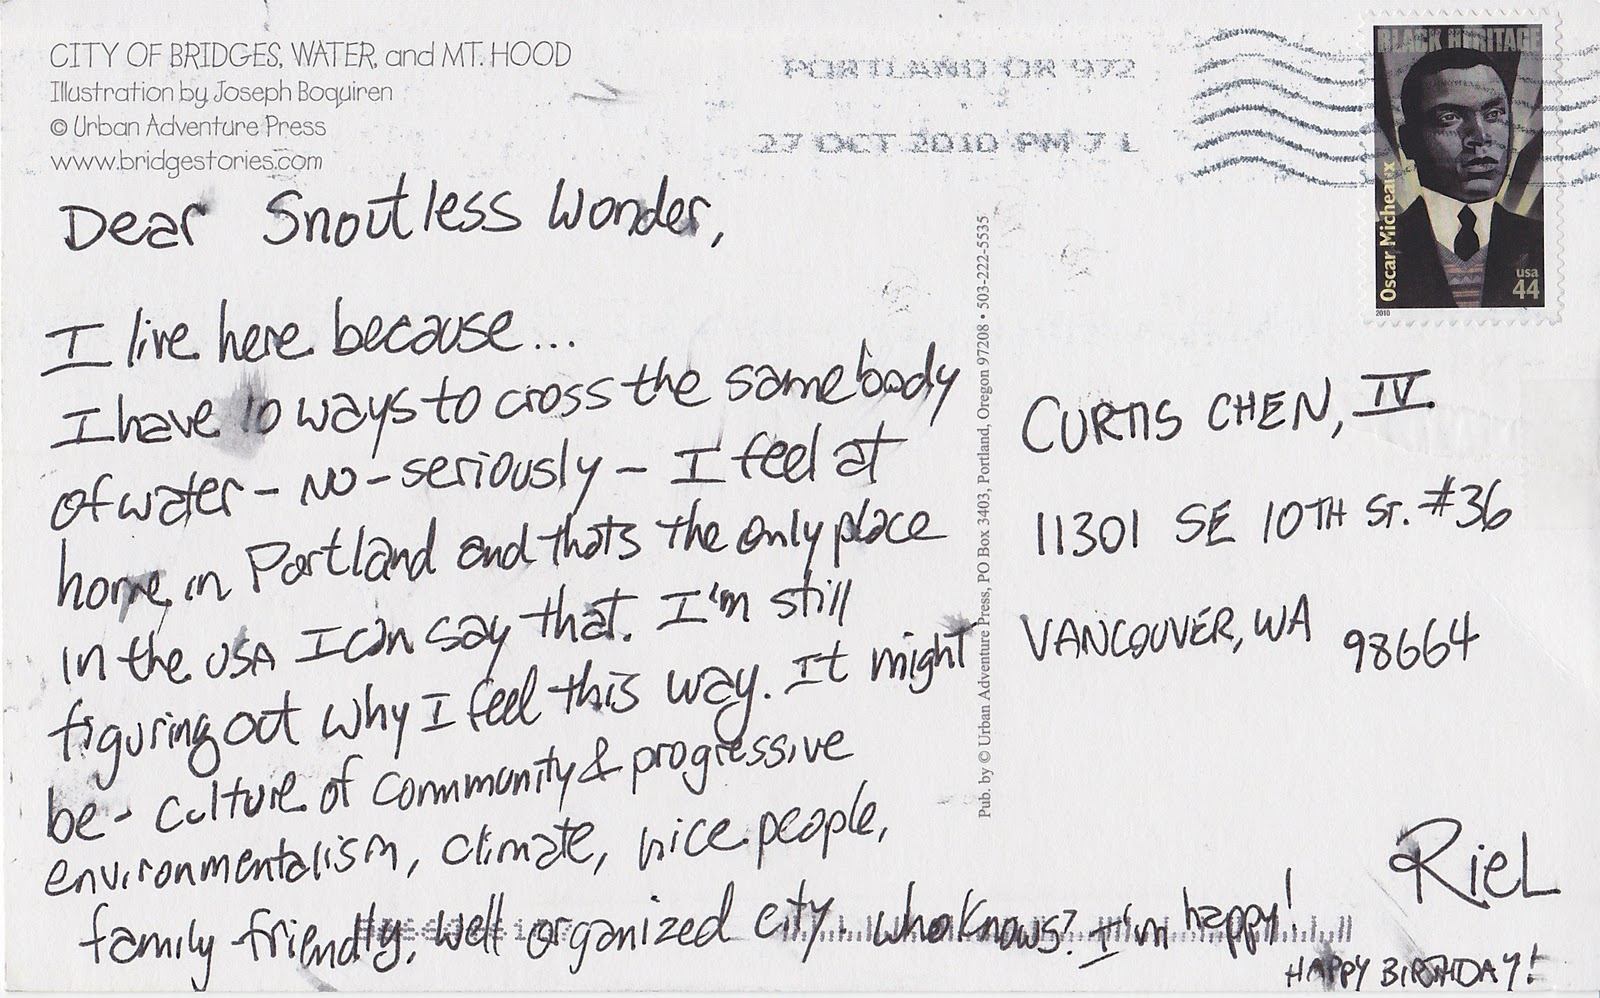 CITY OF BRIDGES, WATER, and MT. HOOD
Illustration by Joseph Boquiren
© Urban Adventure Press
www.bridgestories.com
PORTLAND OR 972
27 OCT 2010 PM 7 L
BLACK HERITAGE
Oscar Micheaux
usa
44
2010
Dear Snoutless Wonder,
I live here because...
I have 10 ways to cross the same body
of water - no - seriously - I feel at
home in Portland and thats the only place
in the USA I can say that. I'm still
figuring out why I feel this way. It might
be - culture of community & progressive
environmentalism, climate, nice people,
family friendly, well organized city. who knows? I'm happy!
Pub. by © Urban Adventure Press, PO Box 3403, Portland, Oregon 97208 • 503-222-5535
CURTIS CHEN, IV.
11301 SE 10TH ST. #36
VANCOUVER, WA 98664
RieL
HAPPY BIRTHDAY!